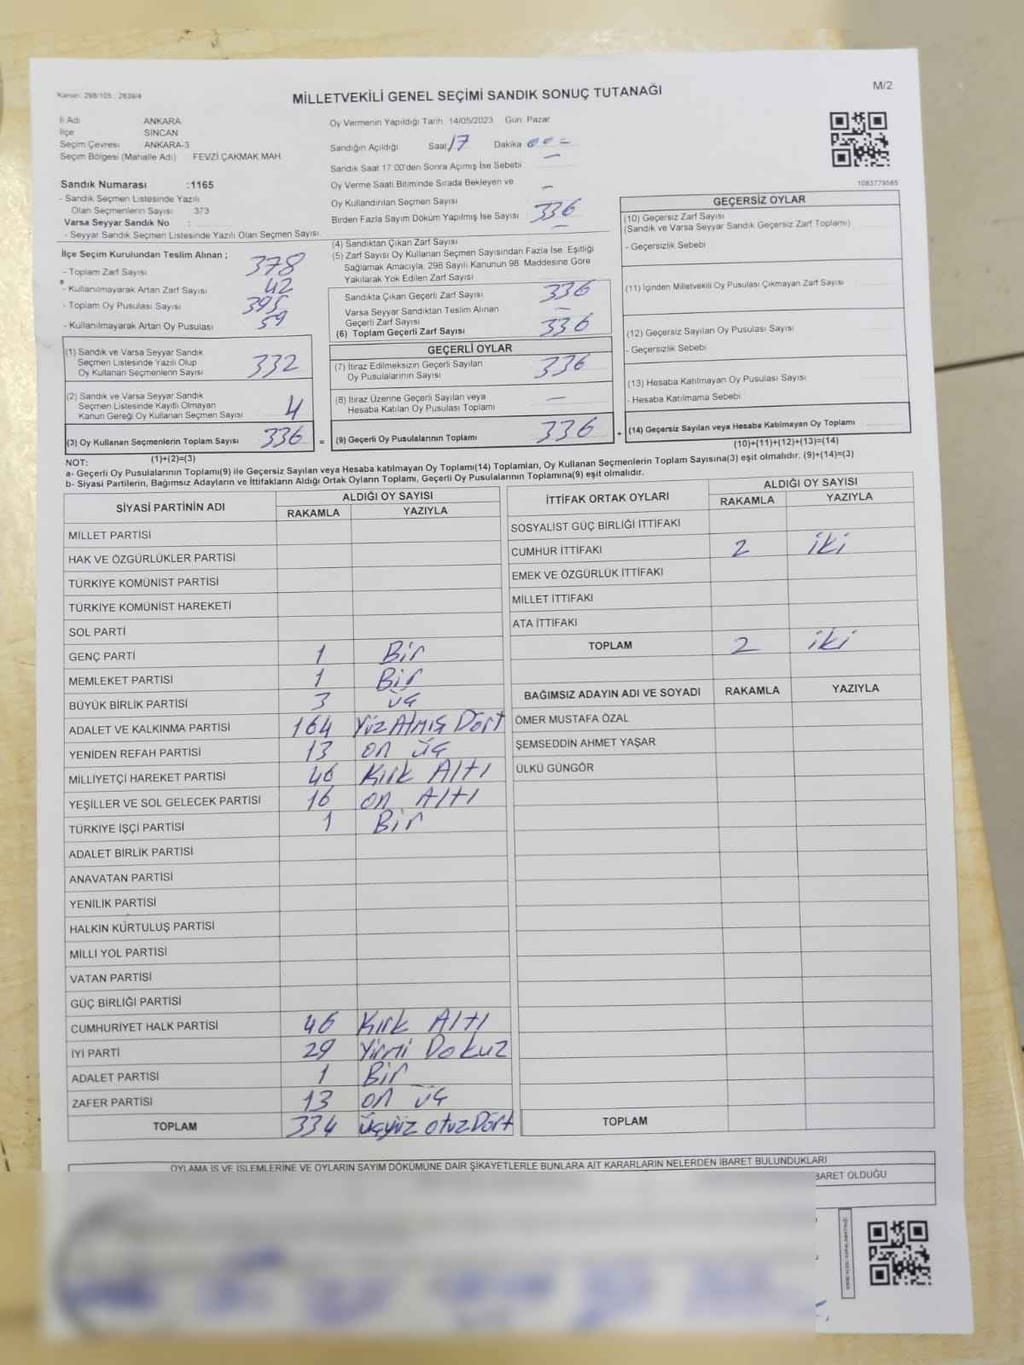 Kanun: 298/105 ; 2839/4
MİLLETVEKİLİ GENEL SEÇİMİ SANDIK SONUÇ TUTANAĞI
M/2
İl Adı ANKARA
İlçe SİNCAN
Seçim Çevresi ANKARA-3
Seçim Bölgesi (Mahalle Adı) FEVZİ ÇAKMAK MAH
Sandık Numarası :1165
- Sandık Seçmen Listesinde Yazılı
Olan Seçmenlerin Sayısı 373
Varsa Seyyar Sandık No :
- Seyyar Sandık Seçmen Listesinde Yazılı Olan Seçmen Sayısı
İlçe Seçim Kurulundan Teslim Alınan ;
- Toplam Zarf Sayısı 378
- Kullanılmayarak Artan Zarf Sayısı 42
- Toplam Oy Pusulası Sayısı 395
- Kullanılmayarak Artan Oy Pusulası 59
(1) Sandık ve Varsa Seyyar Sandık
Seçmen Listesinde Yazılı Olup
Oy Kullanan Seçmenlerin Sayısı 332
(2) Sandık ve Varsa Seyyar Sandık
Seçmen Listesinde Kayıtlı Olmayan
Kanun Gereği Oy Kullanan Seçmen Sayısı 4
(3) Oy Kullanan Seçmenlerin Toplam Sayısı 336 =
(1)+(2)=(3)
Oy Vermenin Yapıldığı Tarih 14/05/2023 Gün Pazar
Sandığın Açıldığı Saat 17 Dakika 00 -
Sandık Saat 17.00'den Sonra Açılmış İse Sebebi -
Oy Verme Saati Bitiminde Sırada Bekleyen ve
Oy Kullandırılan Seçmen Sayısı -
Birden Fazla Sayım Döküm Yapılmış İse Sayısı -
(4) Sandıktan Çıkan Zarf Sayısı 336
(5) Zarf Sayısı Oy Kullanan Seçmen Sayısından Fazla İse Eşitliği
Sağlamak Amacıyla, 298 Sayılı Kanunun 98. Maddesine Göre
Yakılarak Yok Edilen Zarf Sayısı -
Sandıkta Çıkan Geçerli Zarf Sayısı 336
Varsa Seyyar Sandıktan Teslim Alınan
Geçerli Zarf Sayısı -
(6) Toplam Geçerli Zarf Sayısı 336
GEÇERLİ OYLAR
(7) İtiraz Edilmeksizin Geçerli Sayılan
Oy Pusulalarının Sayısı 336
(8) İtiraz Üzerine Geçerli Sayılan veya
Hesaba Katılan Oy Pusulası Toplamı -
(9) Geçerli Oy Pusulalarının Toplamı 336 +
1083779565
GEÇERSİZ OYLAR
(10) Geçersiz Zarf Sayısı
(Sandık ve Varsa Seyyar Sandık Geçersiz Zarf Toplamı)
- Geçersizlik Sebebi
(11) İçinden Milletvekili Oy Pusulası Çıkmayan Zarf Sayısı
(12) Geçersiz Sayılan Oy Pusulası Sayısı
- Geçersizlik Sebebi
(13) Hesaba Katılmayan Oy Pusulası Sayısı
- Hesaba Katılmama Sebebi
(14) Geçersiz Sayılan veya Hesaba Katılmayan Oy Toplamı
(10)+(11)+(12)+(13)=(14)
NOT:
a- Geçerli Oy Pusulalarının Toplamı(9) ile Geçersiz Sayılan veya Hesaba katılmayan Oy Toplamı(14) Toplamları, Oy Kullanan Seçmenlerin Toplam Sayısına(3) eşit olmalıdır. (9)+(14)=(3)
b- Siyasi Partilerin, Bağımsız Adayların ve İttifakların Aldığı Ortak Oyların Toplamı, Geçerli Oy Pusulalarının Toplamına(9) eşit olmalıdır.
SİYASİ PARTİNİN ADI ALDIĞI OY SAYISI
RAKAMLA YAZIYLA
MİLLET PARTİSİ
HAK VE ÖZGÜRLÜKLER PARTİSİ
TÜRKİYE KOMÜNİST PARTİSİ
TÜRKİYE KOMÜNİST HAREKETİ
SOL PARTİ
GENÇ PARTİ 1 Bir
MEMLEKET PARTİSİ 1 Bir
BÜYÜK BİRLİK PARTİSİ 3 üç
ADALET VE KALKINMA PARTİSİ 164 YüzAltmış Dört
YENİDEN REFAH PARTİSİ 13 on üç
MİLLİYETÇİ HAREKET PARTİSİ 46 Kırk Altı
YEŞİLLER VE SOL GELECEK PARTİSİ 16 on Altı
TÜRKİYE İŞÇİ PARTİSİ 1 Bir
ADALET BİRLİK PARTİSİ
ANAVATAN PARTİSİ
YENİLİK PARTİSİ
HALKIN KURTULUŞ PARTİSİ
MİLLİ YOL PARTİSİ
VATAN PARTİSİ
GÜÇ BİRLİĞİ PARTİSİ
CUMHURİYET HALK PARTİSİ 46 Kırk Altı
İYİ PARTİ 29 Yirmi Dokuz
ADALET PARTİSİ 1 Bir
ZAFER PARTİSİ 13 on üç
TOPLAM 334 üçyüz otuzDört
İTTİFAK ORTAK OYLARI ALDIĞI OY SAYISI
RAKAMLA YAZIYLA
SOSYALİST GÜÇ BİRLİĞİ İTTİFAKI
CUMHUR İTTİFAKI 2 iki
EMEK VE ÖZGÜRLÜK İTTİFAKI
MİLLET İTTİFAKI
ATA İTTİFAKI
TOPLAM 2 iki
BAĞIMSIZ ADAYIN ADI VE SOYADI RAKAMLA YAZIYLA
ÖMER MUSTAFA ÖZAL
ŞEMSEDDİN AHMET YAŞAR
ÜLKÜ GÜNGÖR
TOPLAM
OYLAMA İŞ VE İŞLEMLERİNE VE OYLARIN SAYIM DÖKÜMÜNE DAİR ŞİKAYETLERLE BUNLARA AİT KARARLARIN NELERDEN İBARET BULUNDUKLARI
BARET OLDUĞU